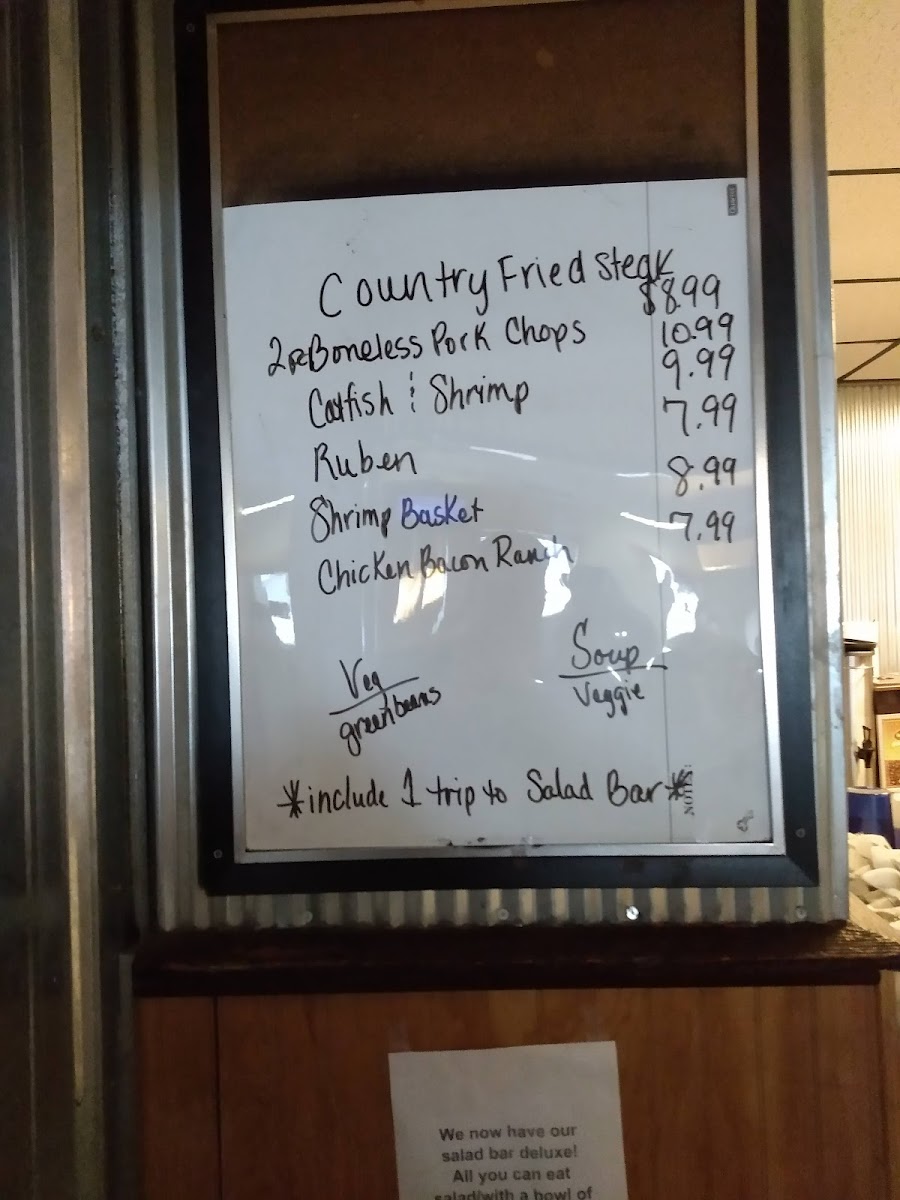 Country Fried Steak
$8.99
2pc Boneless Pork Chops 10.99
9.99
Catfish & Shrimp 7.99
Ruben 8.99
Shrimp Basket 7.99
Chicken Bacon Ranch
Veg
green beans
Soup
Veggie
*include 1 trip to Salad Bar*
We now have our
salad bar deluxe!
All you can eat
salad/with a bowl of